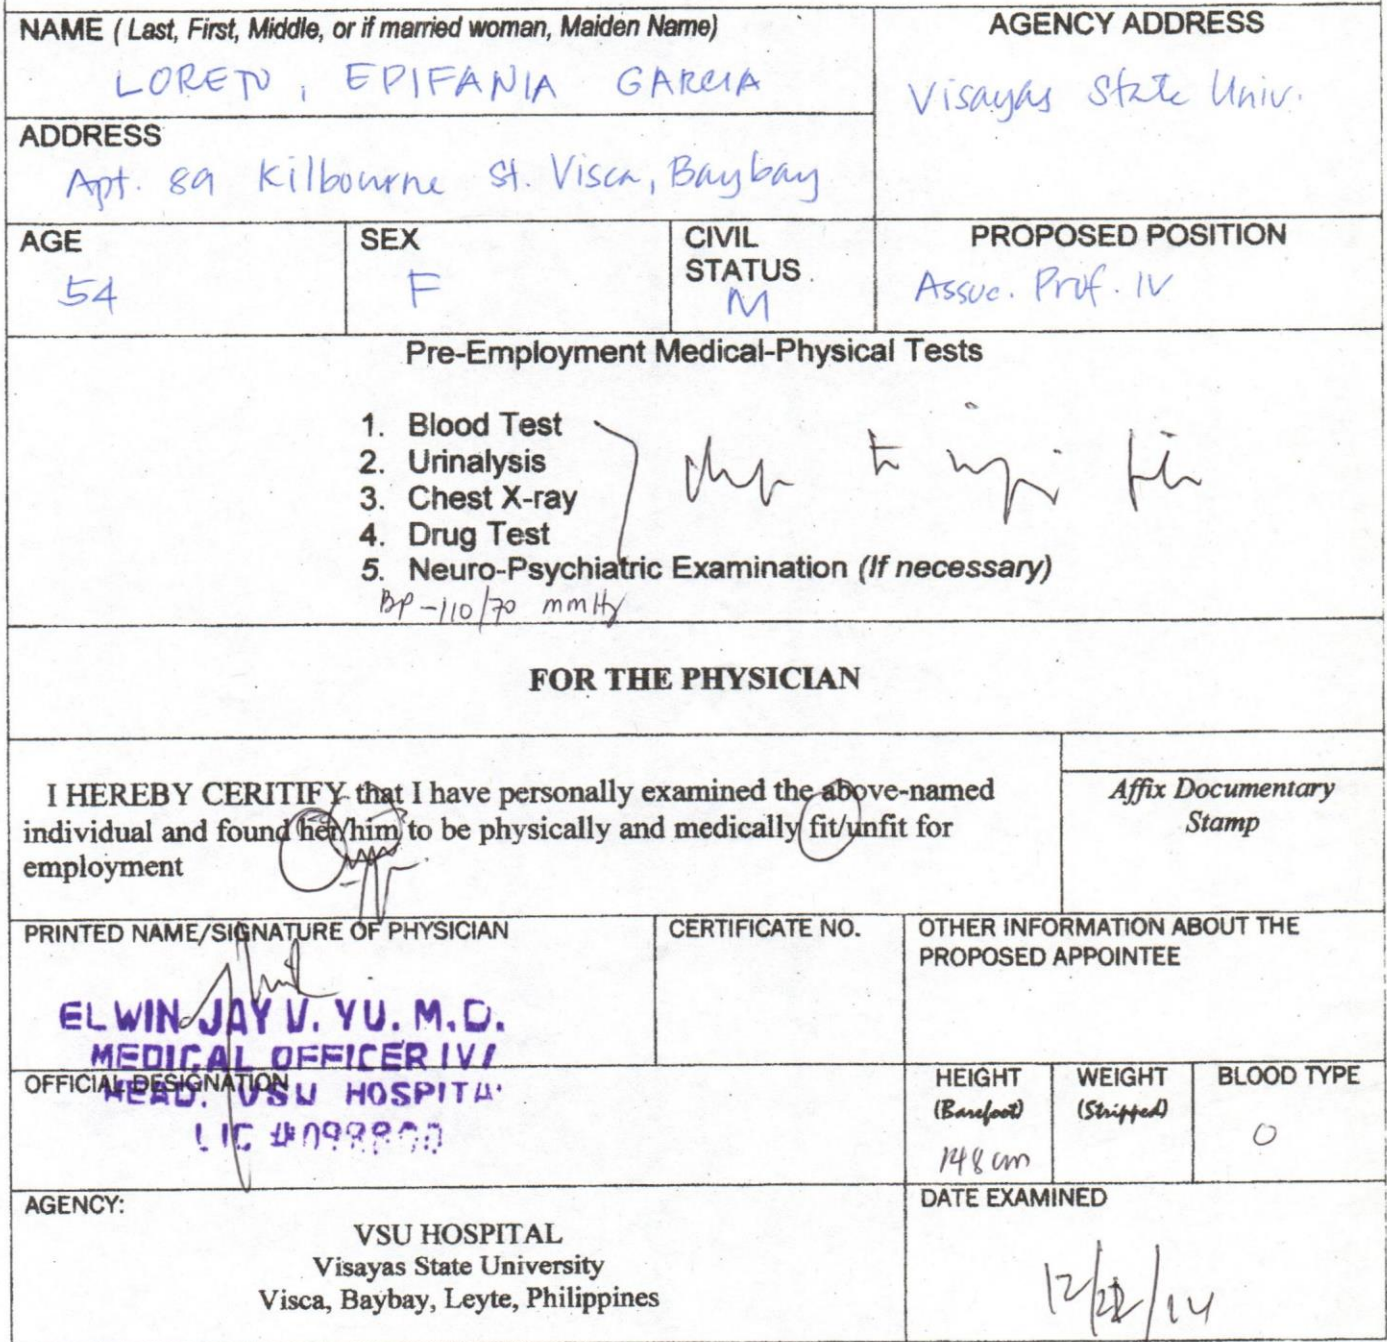 NAME ( Last, First, Middle, or if married woman, Maiden Name)
LORETO, EPIFANIA GARCIA
AGENCY ADDRESS
Visayas State Univ.
ADDRESS
Apt. 89 Kilbourne St. Visca, Baybay
AGE
54
SEX
F
CIVIL
STATUS
M
PROPOSED POSITION
Assoc. Prof. IV
Pre-Employment Medical-Physical Tests
1. Blood Test
2. Urinalysis
3. Chest X-ray
4. Drug Test
5. Neuro-Psychiatric Examination (If necessary)
BP - 110/70 mmHg
FOR THE PHYSICIAN
I HEREBY CERITIFY that I have personally examined the above-named
individual and found her/him to be physically and medically fit/unfit for
employment
Affix Documentary
Stamp
PRINTED NAME/SIGNATURE OF PHYSICIAN
ELWIN JAY V. YU. M.D.
MEDICAL OFFICER IV/
CERTIFICATE NO.
OTHER INFORMATION ABOUT THE
PROPOSED APPOINTEE
OFFICIAL DESIGNATION
HEAD. VSU HOSPITA
LIC
HEIGHT
(Barefoot)
148 cm
WEIGHT
(Stripped)
BLOOD TYPE
O
AGENCY:
VSU HOSPITAL
Visayas State University
Visca, Baybay, Leyte, Philippines
DATE EXAMINED